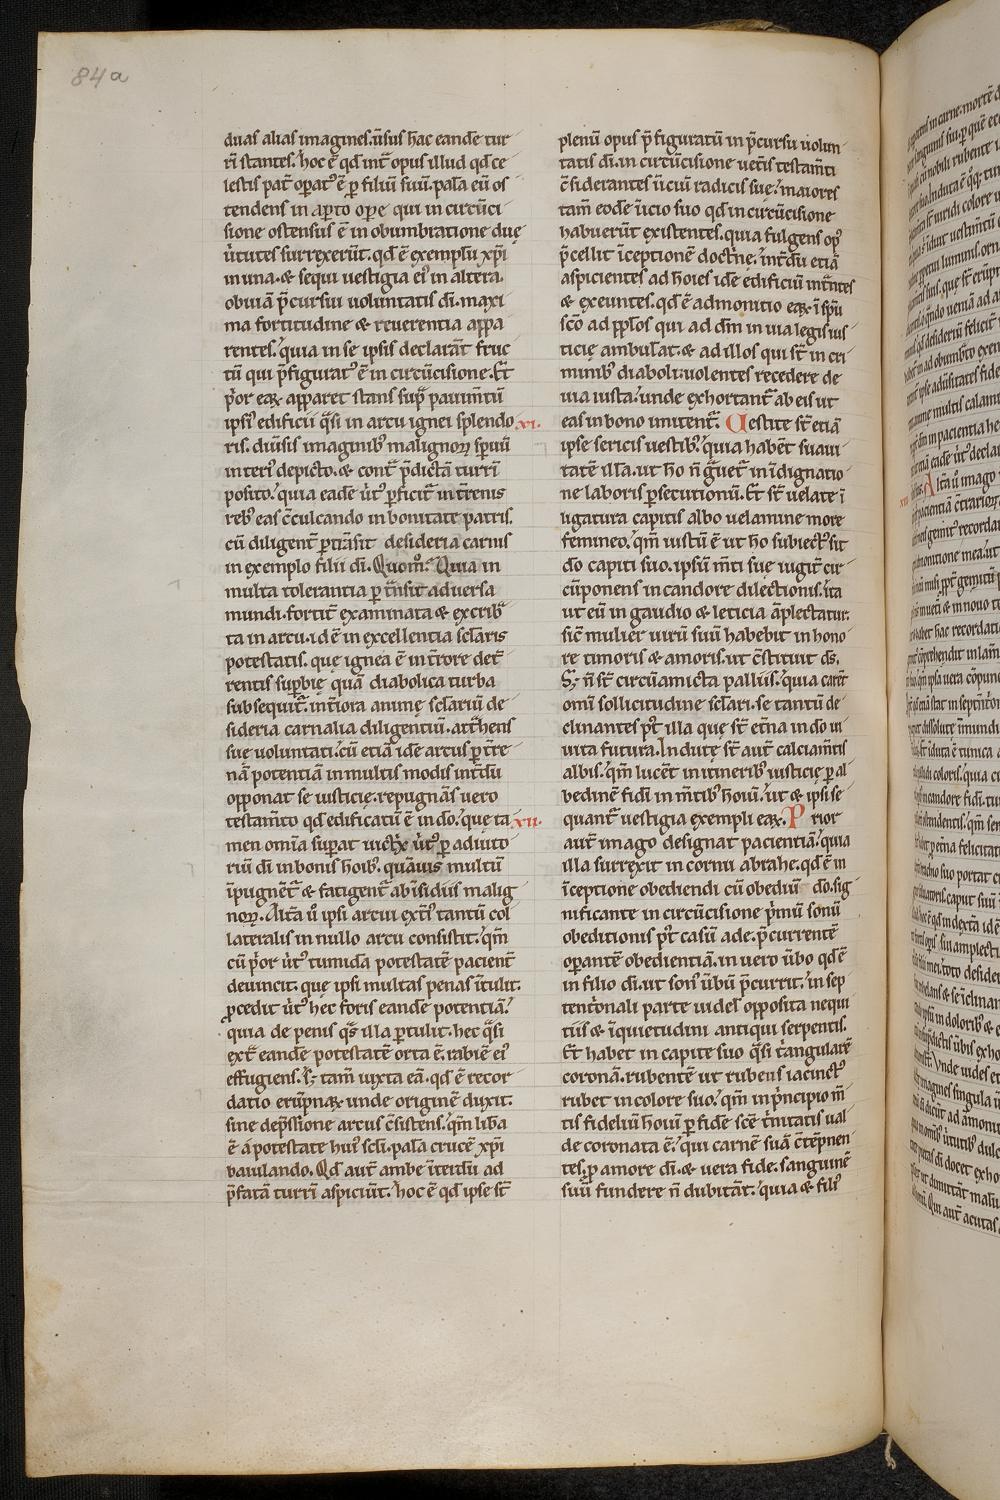 84a
duas alias imagines. ūsus hac eandē tur
ri stantes. hoc ē qd int̄ opus illud qd ce
lestis pat̄ opat᷒ ē p filiū suū. palā eū os
tendens in apto ope qui in circūci
sione ostensus ē in obumbratione due
ùtutes surrexerūt. qd ē exemplū xp̄i
in una. & sequi uestigia ei᷒ in altera.
obuiā p̄cursui uoluntatis dī. maxi
ma fortitudine & reuerentia appa
rentes. quia in se ipsis declarāt fruc
tū qui p̄figurat᷒ ē in circūcisione. Et
p̓or eaꝝ apparet stans sup̄ pauim̄tū
ipsi᷒ edificii q̄si in arcu ignei splendo xi.
ris. diūsis imaginib᷒ malignoꝝ spūū
interi᷒ depicto. & cont̄ p̄dictā turrī
posito. quia eadē ùt᷒ pficit᷑ in t̄renis
reb᷒ eas c̄culcando in bonitate patris.
cū diligent̄ ptrāsit desideria carnis
in exemplo filii dī. Quom̊? Quia in
multa tolerantia p t̄nsit aduersa
mundi. fortit̄ examinata & excrib̄
ta in arcu. id ē in excellentia sc̄laris
potestatis. que ignea ē in t̄rore det̄
rentis supbie quā diabolica turba
subsequit᷑. int̄iora anime sc̄lariū de
sideria carnalia diligentiū. att̄hens
sue uoluntati. cū etiā idē arcus p t̄re
nā potentiā in multis modis int̄dū
opponat se iusticie. repugnās uero
testam̄to qd edificatū ē in dō. que ta xii.
men omīa supat uict̄x ùt᷒ p adiuto
riū dī in bonis hoīb᷒. quāuis multū
īpugnet᷑ & fatiget᷑ ab īsidiis malig
noꝝ. Alt̄a u̓ ipsi arcui ext̄i᷒ tantū col
lateralis in nullo arcu consistit. qm̄
cū p̓or ùt᷒ tumidā potestatē pacient̄
deuincit. que ipsi multas penas ītulit.
ꝓcedit ùt᷒ hec foris eandē potentiā.
quia de penis q̄s illa ptulit. hec q̄si
ext̄ eandē potestatē orta ē. rabiē ei᷒
effugiens. s; tam̄ iuxta eā. qd ē recor
datio erūpnaꝝ unde originē duxit.
sine dep̄ssione arcus c̄sistens. qm̄ lib̄a
ē a potestate hui᷒ sc̄li. palā crucē xp̄i
baiulando. Qd aut̄ ambe īterdū ad
p̄fatā turrī aspiciūt. hoc ē qd ipse st̄
plenū opus p̄figuratū in p̄cursu uolun
tatis dī. in circūcisione uet̄is testam̄ti
c̄siderantes ūciū radicis sue. maiores
tam̄ eodē īicio suo qd in circūcisione
habuerūt existentes. quia fulgens op᷒
p̄cellit īceptionē doct̄ne. int̄dū etiā
aspicientes ad hoīes idē edificiū int̄ntes
& exeuntes. qd ē admonitio eaꝝ ī spū
sc̄o ad pplōs qui ad dm̄ in uia legis ius
ticie ambulāt. & ad illos qui st̄ in cri
minib᷒ diaboli. uolentes recedere de
uia iusta. unde exhortant᷑ ab eis ut
eas in bono imitent᷑. Uestite st̄ etiā
ipse sericis uestib᷒. quia habēt suaui
tatē illa. ut hō n̄ g̓uet᷑ in īdignatio
ne laboris psecutionū. Et st̄ uelate ī
ligatura capitis albo uelamine more
femineo. qm̄ iustū ē ut hō subiect᷒ sit
dō capiti suo. ipsū m̄ti sue iugit̄ cir
cūponens in candore dilectionis. ita
ut eū in gaudio & leticia āplectatur.
sic̄ mulier uirū suū habebit in hono
re timoris & amoris. ut c̄stituit ds̄.
S; n̄ st̄ circūamicta palliis. quia carēt
omī sollicitudine sc̄lari. se tantū de
clinantes p̄t illa que st̄ et̄na in dō in
uita futura. Indute st̄ aut̄ calciam̄tis
albis. qm̄ lucēt in itinerib᷒ iusticie p al
bedinē fidī in m̄tib᷒ hoīū. ut & ipsi se
quant᷑ uestigia exempli eaꝝ. Prior
aut̄ imago designat pacientiā. quia
illa surrexit in cornu abrahe. qd ē in
īceptione obediendi cū obediuī dō. sig
nificante in circūcisione p̓mū sonū
obeditionis p̄t casū ade. p̄currentē
opantē obedientiā. in uero ūbo qd ē
in filio dī. ut son᷒ ūbū p̄currit. in sep
tent̓onali parte uidel᷒ opposita nequi
tiis & īquietudini antiqui serpentis.
Et habet in capite suo q̄si t̓angularē
coronā. rubentē ut rubens iacinct᷒
rubet in colore suo. qm̄ in p̓ncipio m̄
tis fideliū hoīū p fidē sc̄e t̓nitatis ual
de coronata ē. qui carnē suā c̄tēpnen
tes. p amore dī. & uera fide. sanguinē
suū fundere n̄ dubitāt. quia & fili᷒